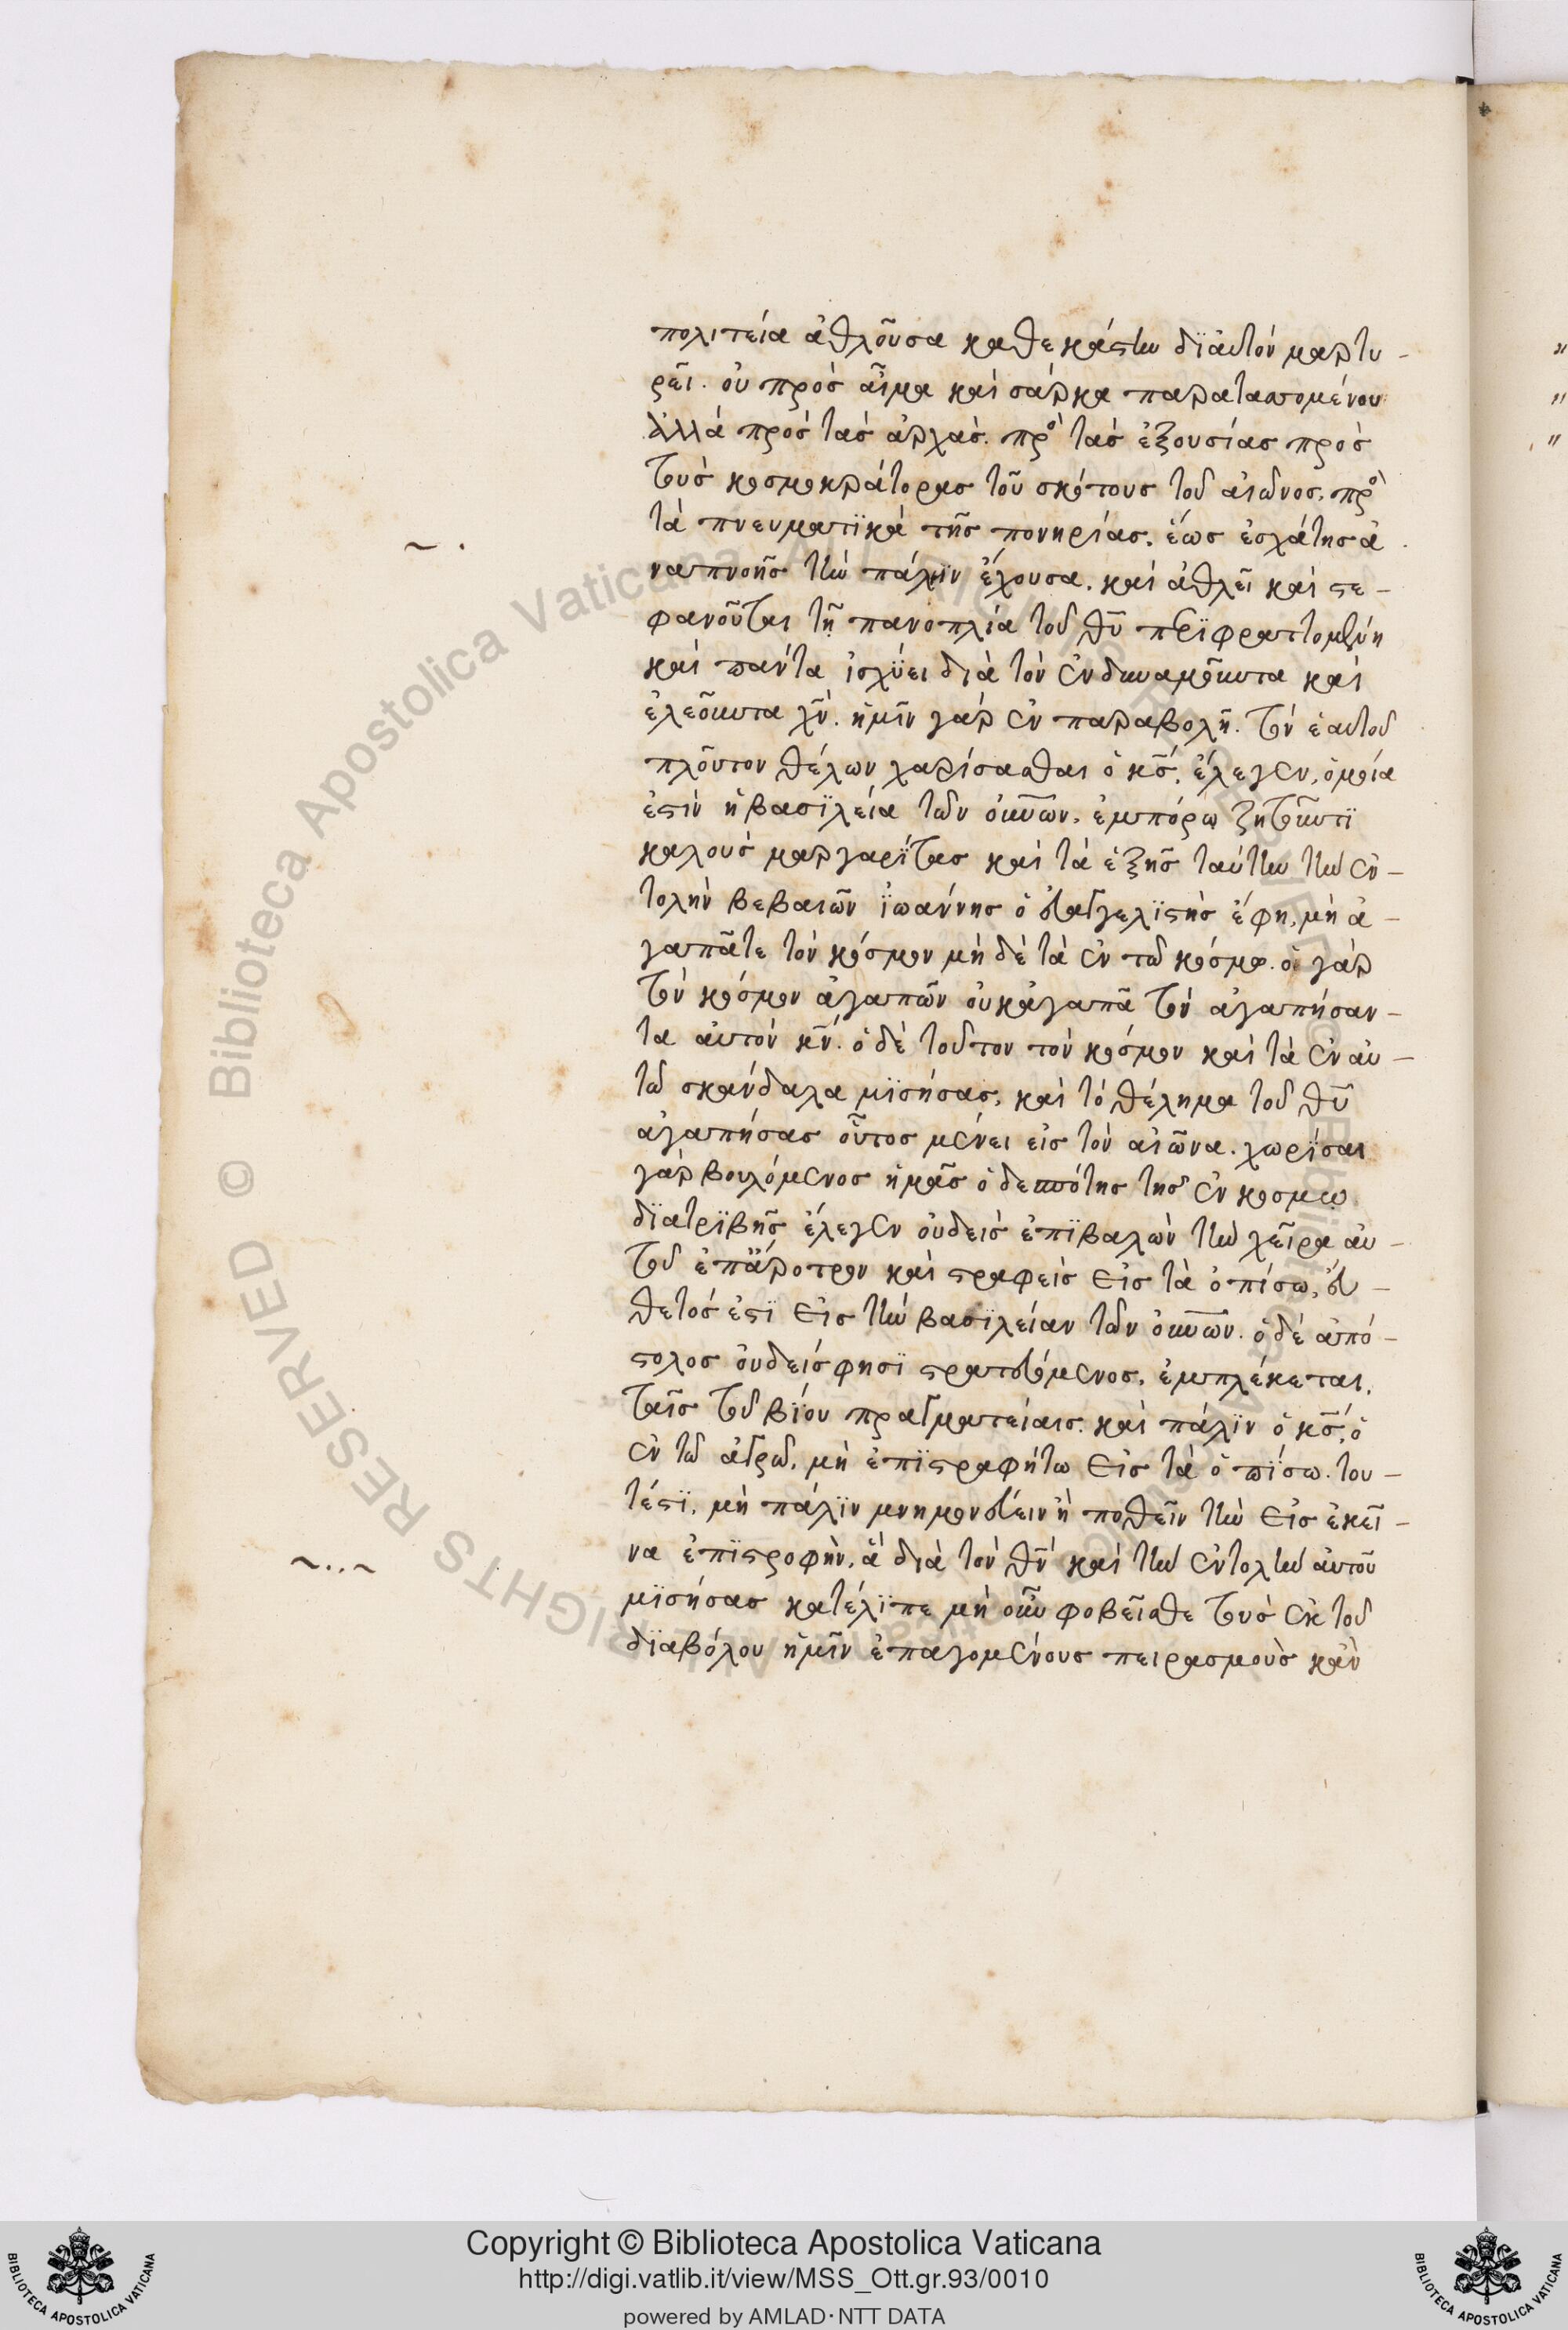 πολιτεία ἀθλοῦσα καθεκάστην δϊαὐτὸν μαρτυ-
ρεῖ. οὐ πρὸς αἷμα καὶ σάρκα παραταττομένου
ἀλλὰ πρὸς τὰς ἀρχὰς. πρὸ τὰς ἐξουσίας πρὸς
τοὺς κοσμοκράτορας τοῦ σκότους τοῦ αἰῶνος, πρὸ
τὰ πνευματϊκὰ τῆς πονηρίας. ἕως ἐσχάτης ἀ
ναπνοῆς τὴν πάλϊν ἔχουσα. καὶ ἀθλεῖ καὶ στε-
φανοῦται τῇ πανοπλία τοῦ θῦ περϊφραττομένη
καὶ πάντα ἰσχύει διὰ τὸν ἐνδυναμοῦντα καὶ
ἐλεοῦντα χν. ἡμῖν γὰρ ἐν παραβολῇ. τὸν ἑαυτοῦ
πλοῦτον θέλων χαρίσασθαι ὁ κς, ἔλεγεν, ὁμοία
ἐστὶν ἡ βασϊλεία τῶν οὐνῶν. ἐμπόρῳ ζητοῦντϊ
καλοὺς μαργαρίτας καὶ τὰ ἑξῆς ταύτην τὴν ἐν-
τολὴν βεβαιῶν ϊωάννης ὁ εὐαγγελϊστὴς ἔφη, μὴ ἀ-
γαπᾶτε τὸν κόσμον μὴ δὲ τὰ ἐν τῶ κόσμω. ὁ γὰρ
τὸν κόσμον ἀγαπῶν οὐκἀγαπᾶ τὸν ἀγαπήσαν-
τα αὐτὸν κν. ὁ δὲ τοῦτον τὸν κόσμον καὶ τὰ ἐν αὐ-
τῶ σκάνδαλα μϊσήσας, καὶ τὸ θέλημα τοῦ θῦ
ἀγαπήσας οὗτος μένει εἰς τὸν αἰῶνα. χωρίσαι
γὰρ βουλόμενος ἡμᾶς ὁ δεσπότης τῆς ἐν κοσμω
δϊατρϊβῆς ἔλεγεν οὐδεὶς ἐπϊβαλὼν τὴν χεῖρα αὐ-
τοῦ ἐπἄροτρον καὶ στραφεὶς εἰς τὰ ὀπίσω, εὔ-
θετός ἐστϊ εἰς τὴν βασϊλείαν τῶν οὐνῶν. ὁ δὲ ἀπό-
στολος οὐδείς φησϊ στρατευόμενος, ἐμπλέκεται,
ταῖς τοῦ βίου πραγματείαις. καὶ πάλϊν ὁ κς, ὁ
ἐν τῶ ἀγρῶ, μὴ ἐπϊστραφήτω εἰς τὰ ὀπίσω. του-
τέστϊ, μὴ πάλϊν μνημονεύειν ἢ ποθεῖν τὴν εἰς ἐκεῖ-
να ἐπϊστροφὴν, ἃ διὰ τὸν θν καὶ τὴν ἐντολὴν αὐτοῦ
μϊσήσας κατέλϊπε μὴ οὖν φοβεῖσθε τοὺς ἐκ τοῦ
δϊαβόλου ἡμῖν ἐπαγομένους πειρασμοὺς κἂν
© Biblioteca Apostolica Vaticana ALL RIGHTS RESERVED
Copyright © Biblioteca Apostolica Vaticana
http://digi.vatlib.it/view/MSS_Ott.gr.93/0010
powered by AMLAD·NTT DATA
BIBLIOTECA APOSTOLICA VATICANA
BIBLIOTECA APOSTOLICA VATICANA